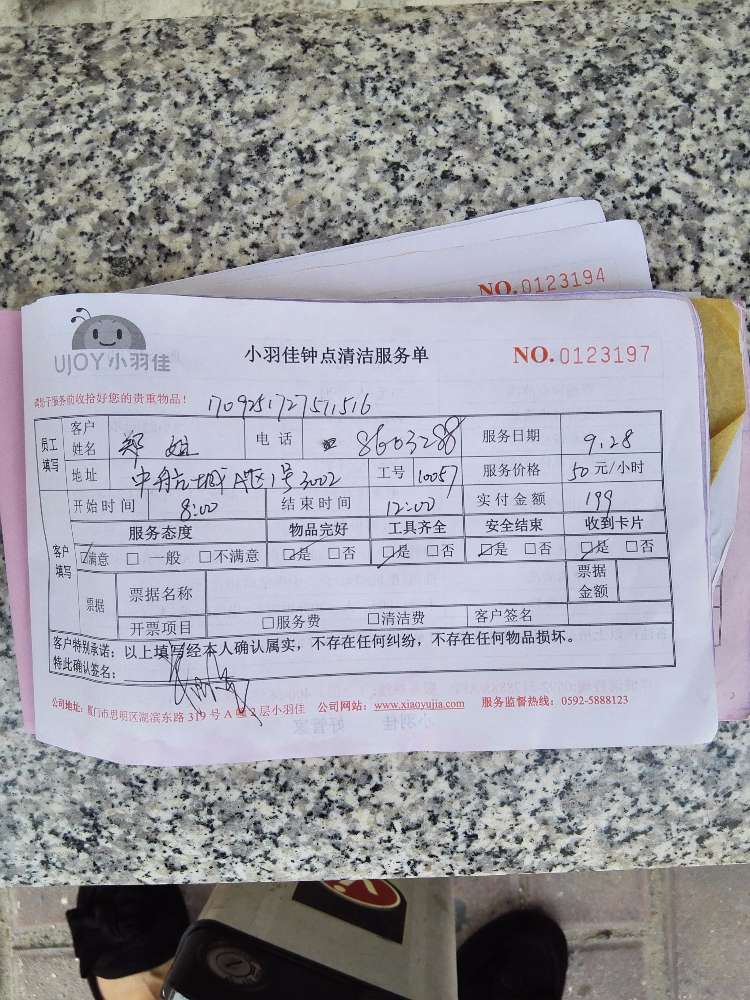 NO.0123194
UJOY小羽佳
小羽佳钟点清洁服务单
NO.0123197
请于服务前收拾好您的贵重物品！
1709251727571516
员工填写 客户姓名 郑姐 电话 8603288 服务日期 9.28
地址 中航城A区1号3002 工号 10057 服务价格 50元/小时
客户填写 开始时间 8:00 结束时间 12:00 实付金额 199
服务态度 物品完好 工具齐全 安全结束 收到卡片
☑满意 □一般 □不满意 ☑是 □否 ☑是 □否 ☑是 □否 ☑是 □否
票据 票据名称 票据金额
开票项目 □服务费 □清洁费 客户签名
客户特别承诺：以上填写经本人确认属实，不存在任何纠纷，不存在任何物品损坏。
特此确认签名：
公司地址：厦门市思明区湖滨东路319号A 2层小羽佳 公司网站：www.xiaoyujia.com 服务监督热线：0592-5888123